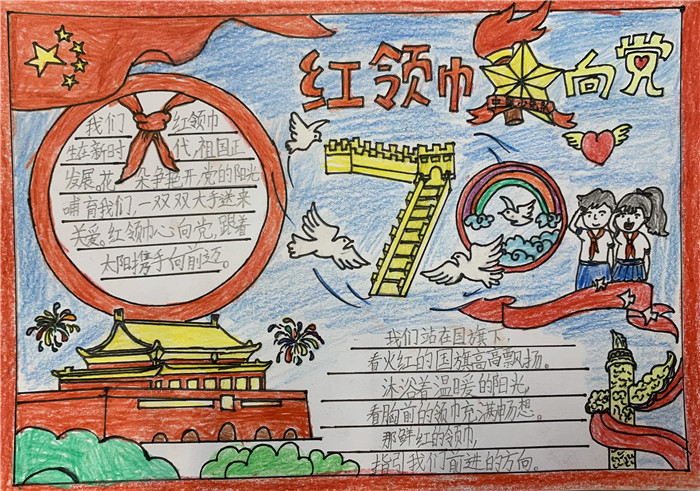 红领巾心向党
中国少先队
70
我们 红领巾
生在新时 代,祖国正
发展。花 朵争艳开,党的阳光
哺育我们,一双双大手送来
关爱。红领巾心向党,跟着
太阳携手向前迈。
我们站在国旗下,
看火红的国旗高高飘扬。
沐浴着温暖的阳光,
看胸前的领巾充满畅想。
那鲜红的领巾,
指引我们前进的方向。